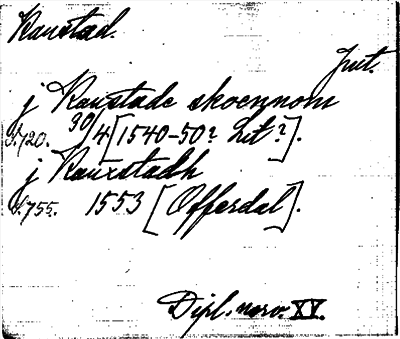 Raustad.
Jmt.
j Raustade skoennom
s. 720. 30/4 [1540-50? Lit?].
j Raurstadh
s. 755. 1553 [Offerdal].
Dipl. norv. XV.